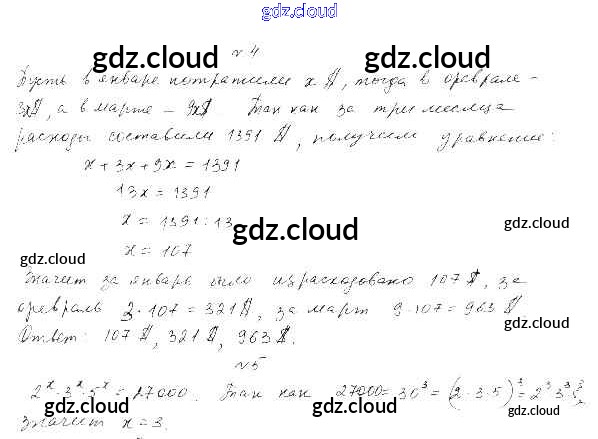 gdz.cloud
gdz.cloud gdz.cloud
№ 4
Пусть в январе потратили x $, тогда в феврале -
3x$, а в марте - 9x$. Так как за три месяца
расходы составили 1391 $, получим уравнение:
x + 3x + 9x = 1391
13x = 1391
x = 1391 : 13
gdz.cloud gdz.cloud
x = 107
gdz.cloud
Значит за январь было израсходовано 107 $, за
февраль 3 · 107 = 321$, за март 9 · 107 = 963 $.
gdz.cloud
Ответ: 107 $, 321 $, 963 $.
gdz.cloud
№ 5
2ˣ · 3ˣ · 5ˣ = 27000. Так как 27000 = 30³ = (2 · 3 · 5)³ = 2³ · 3³ · 5³.
gdz.cloud gdz.cloud
Значит x = 3.